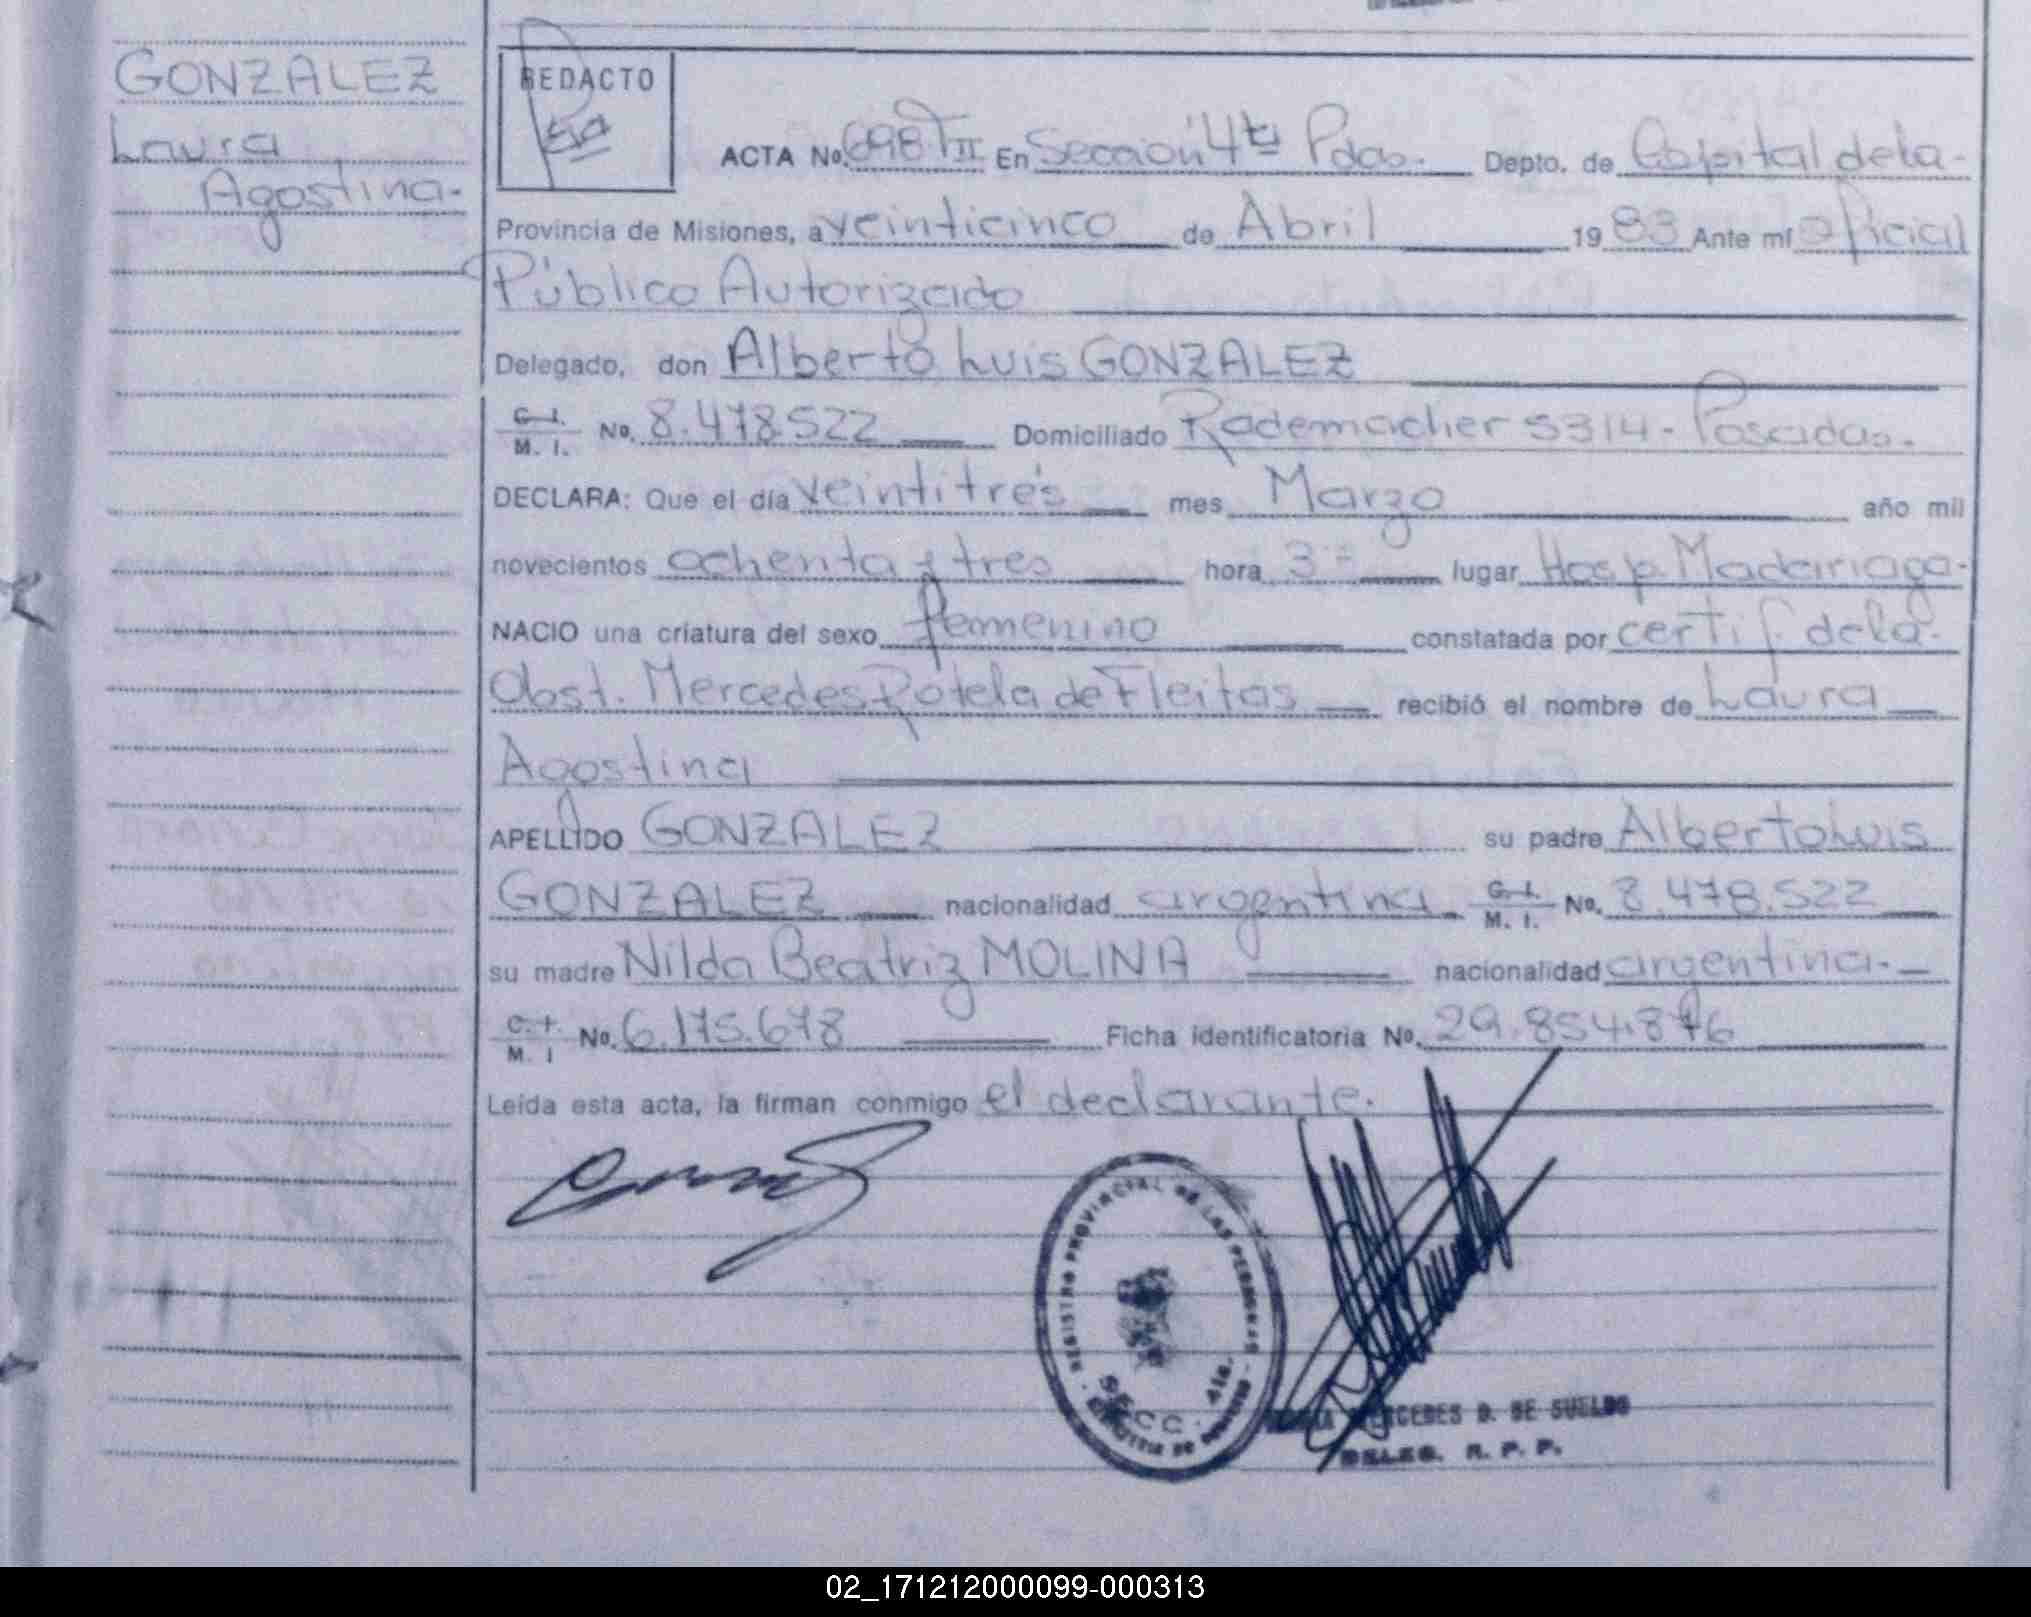 GONZALEZ
Laura
Agostina.-
REDACTO
ACTA No. 698 TII En Sección 4ta Pdas. Depto. de Capital de la-
Provincia de Misiones, a veinticinco de Abril 1983 Ante mí Oficial
Público Autorizado
Delegado, don Alberto Luis GONZALEZ
C. I. M. I. No. 8.478.522 Domiciliado Rademacher 5314 - Posadas.-
DECLARA: Que el día veintitrés mes Marzo año mil
novecientos ochenta y tres hora 3 lugar Hosp. Madariaga-
NACIO una criatura del sexo femenino constatada por certif. de la-
Obst. Mercedes Rotela de Fleitas recibió el nombre de Laura
Agostina
APELLIDO GONZALEZ su padre Alberto Luis
GONZALEZ nacionalidad argentina C. I. M. I. No. 8.478.522
su madre Nilda Beatriz MOLINA nacionalidad argentina.-
C. I. M. I No. 6.175.678 Ficha identificatoria No. 29.854.876
Leída esta acta, la firman conmigo el declarante.
REGISTRO PROVINCIAL DE LAS PERSONAS
SECC. 4ta.
MERCEDES D. DE SUELDO
DELEG. R. P. P.
02_171212000099-000313